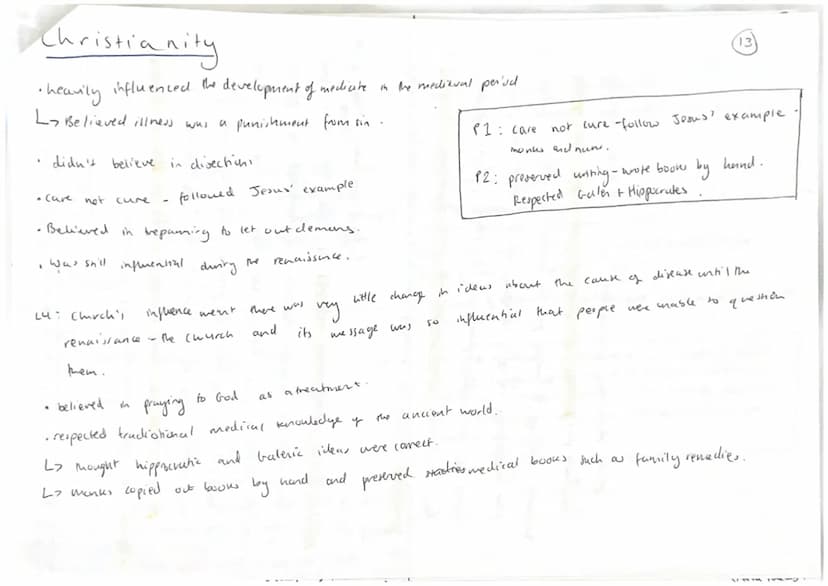 Christianity
13
• heavily influenced the development of medicate in the medieval period
↳ Believed illness was a punishment from sin.
• didn't believe in disections
• care not cure - followed Jesus' example
• Believed in trepanning to let out demons.
• Was still influential during the renaissance.
P1: care not cure - follow Jesus' example.
monks and nuns.
P2: preserved writing - wrote books by hand.
Respected Galen + Hippocrates.
L4: Church's influence meant there was very little change in ideas about the cause of disease until the
renaissance - the church and its message was so influential that people were unable to question
them.
• believed in praying to God as a treatment.
• respected traditional medical knowledge of the ancient world.
↳ thought hippocratic and Galenic ideas were correct.
↳ monks copied out books by hand and preserved medical books such as family remedies.